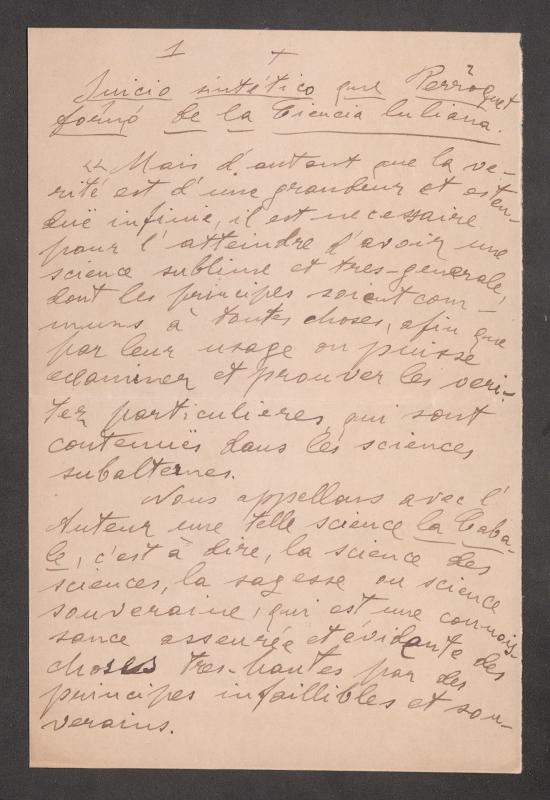 1 +
Juicio sintético que Perroquet
formó de la Ciencia luliana.
"Mais d'autant que la ve-
rité est d'une grandeur et esten-
duë infinie, il est necessaire
pour l'atteindre d'avoir une
science sublime et tres-generale,
dont les principes soient com-
muns à toutes choses, afin que
par leur usage on puisse
examiner et prouver les veri-
tez particulieres qui sont
contenuës dans les sciences
subalternes.
Nous appellons avec l'
Auteur une telle science la Caba-
le, c'est à dire, la science des
sciences, la sagesse ou science
souveraine, qui est une connois-
sance asseurée et évidante des
choses tres-hautes par des
principes infaillibles et sou-
verains.